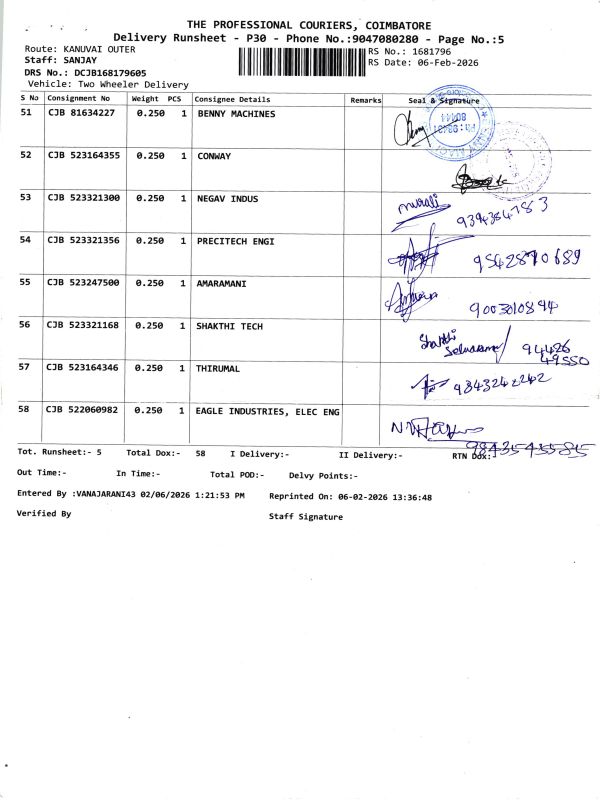 THE PROFESSIONAL COURIERS, COIMBATORE
Delivery Runsheet - P30 - Phone No.:9047080280 - Page No.:5
Route: KANUVAI OUTER
RS No.: 1681796
Staff: SANJAY
RS Date: 06-Feb-2026
DRS No.: DCJB168179605
Vehicle: Two Wheeler Delivery
S No Consignment No Weight PCS Consignee Details Remarks Seal & Signature
51 CJB 81634227 0.250 1 BENNY MACHINES
52 CJB 523164355 0.250 1 CONWAY
53 CJB 523321300 0.250 1 NEGAV INDUS murali 9394384783
54 CJB 523321356 0.250 1 PRECITECH ENGI 9542890689
55 CJB 523247500 0.250 1 AMARAMANI 9003010894
56 CJB 523321168 0.250 1 SHAKTHI TECH Shakthi Selvakumar 94426 49550
57 CJB 523164346 0.250 1 THIRUMAL 93843242242
58 CJB 522060982 0.250 1 EAGLE INDUSTRIES, ELEC ENG
Tot. Runsheet:- 5 Total Dox:- 58 I Delivery:- II Delivery:- RTN Dox:
Out Time:- In Time:- Total POD:- Delvy Points:-
Entered By :VANAJARANI43 02/06/2026 1:21:53 PM Reprinted On: 06-02-2026 13:36:48
Verified By Staff Signature